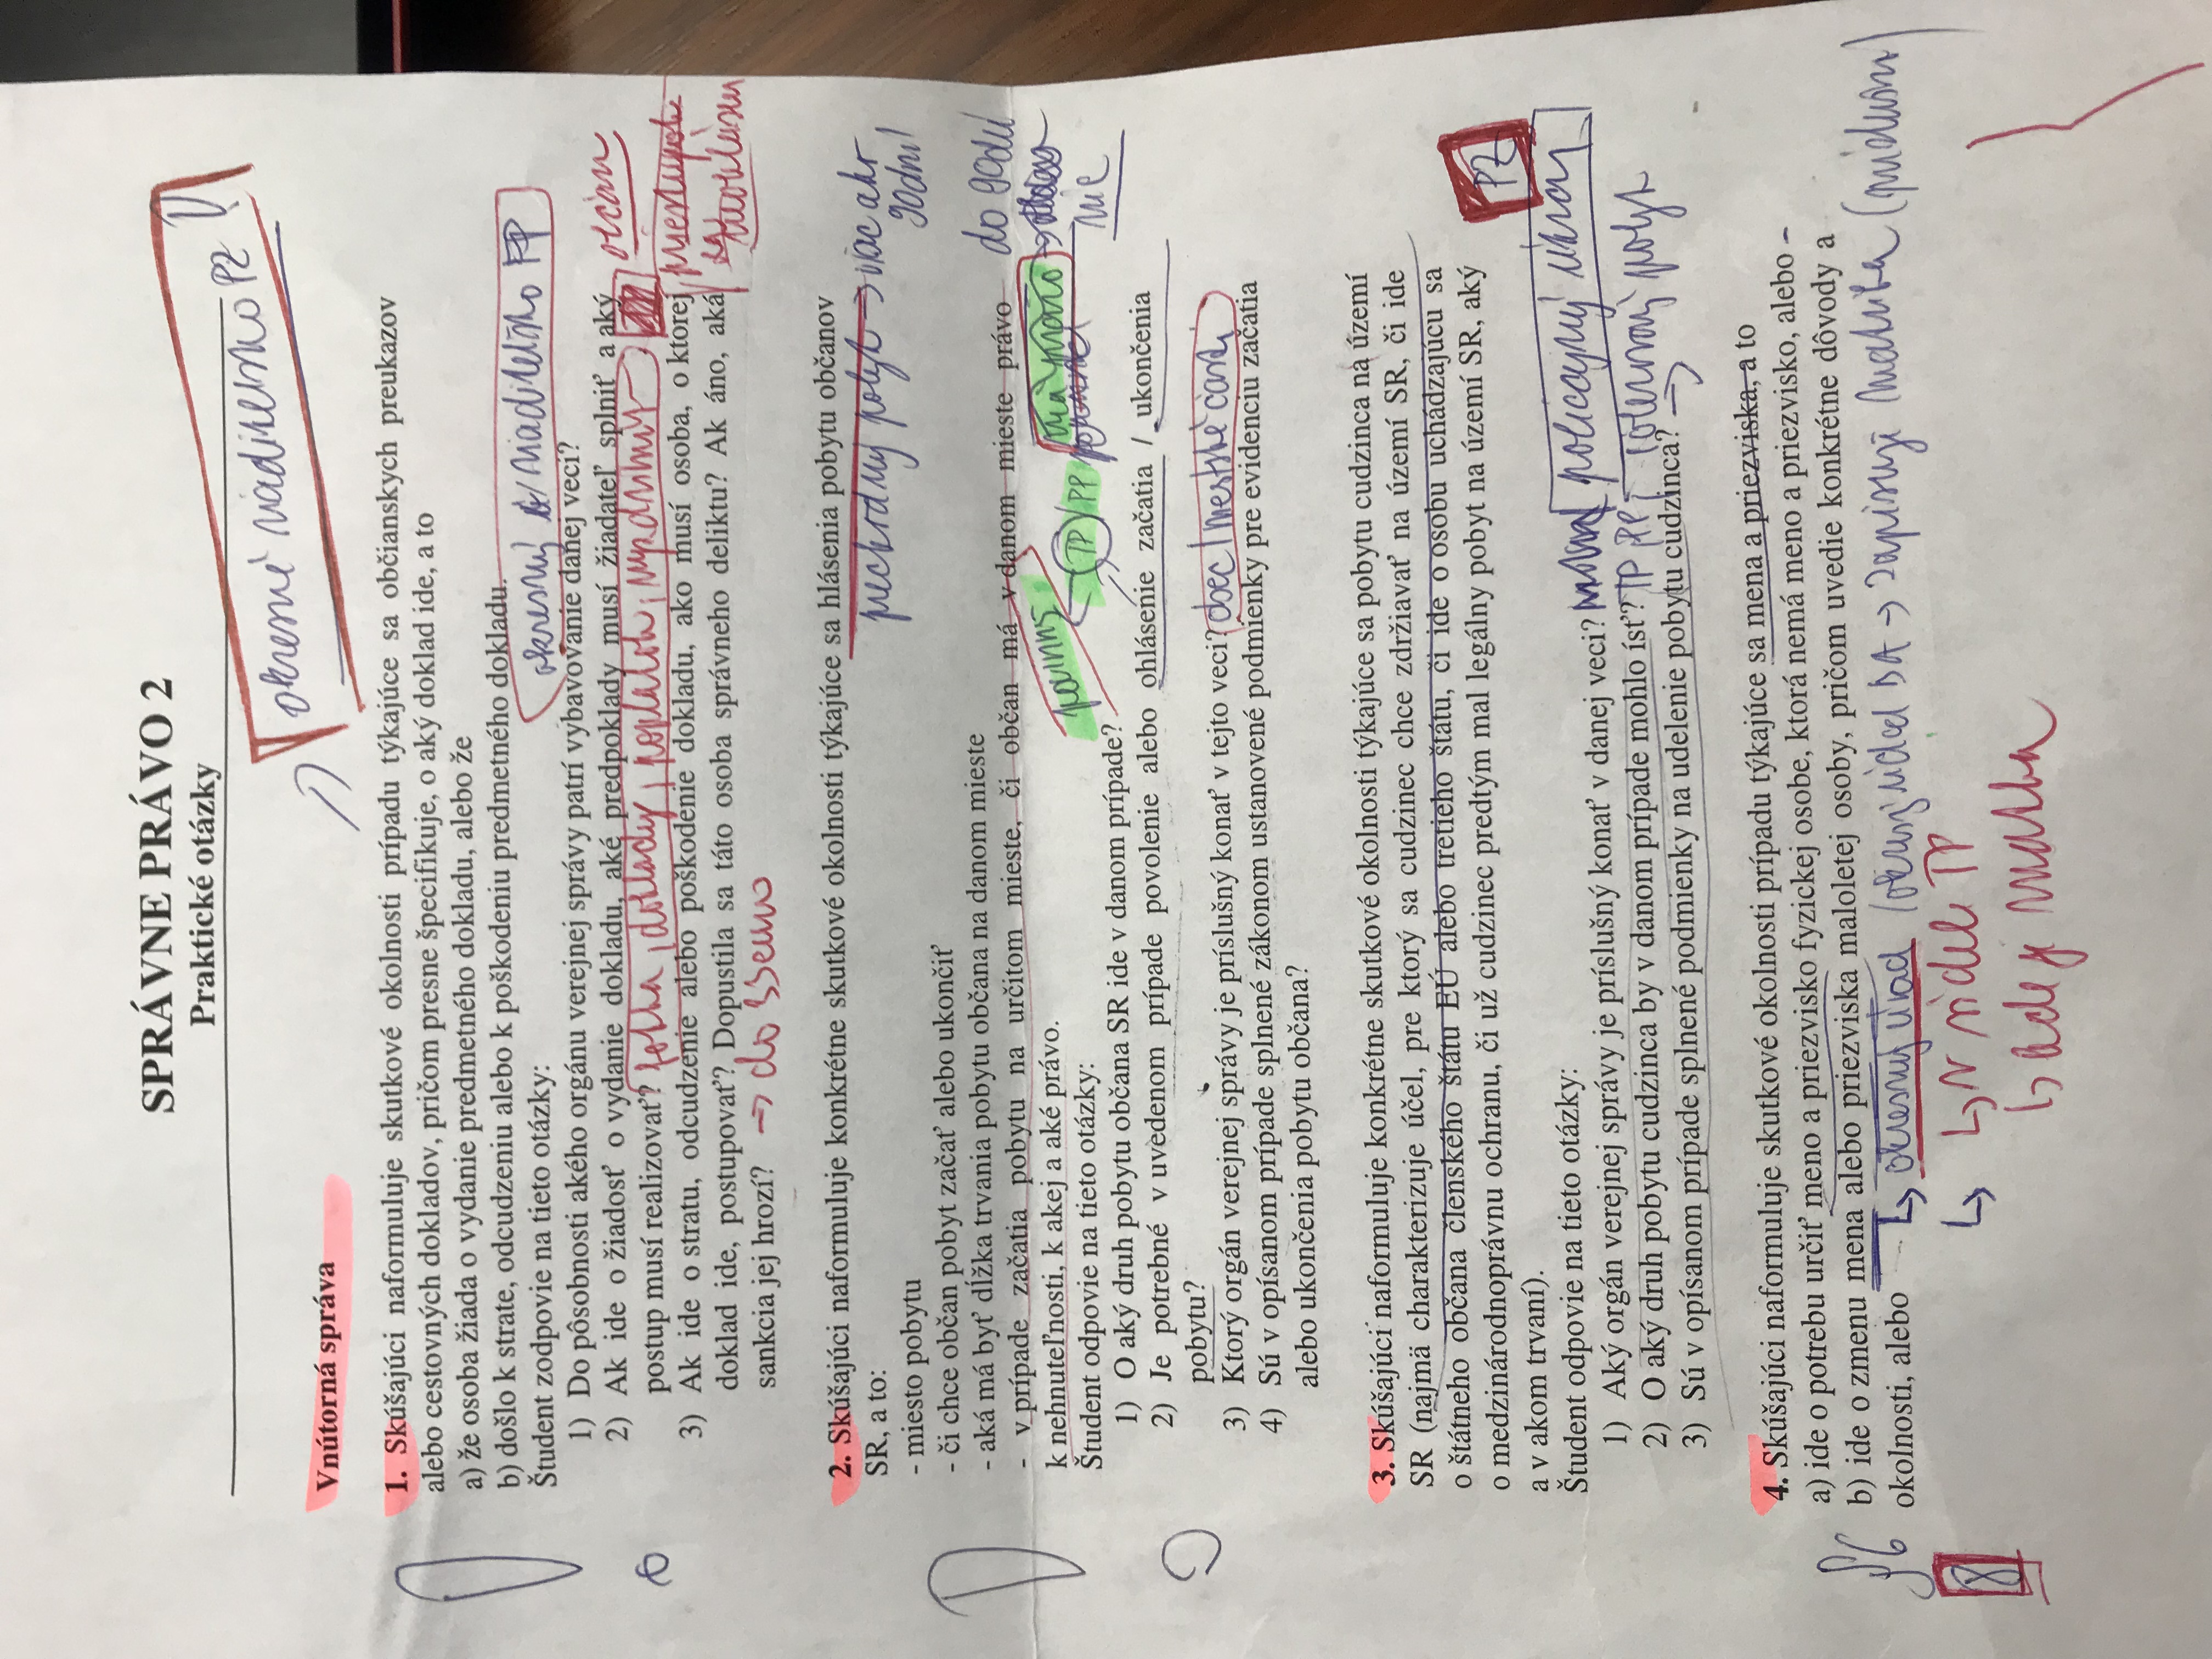 SPRÁVNE PRÁVO 2
Praktické otázky
okresné riaditeľstvo PZ
Vnútorná správa
1. Skúšajúci naformuluje skutkové okolnosti prípadu týkajúce sa občianskych preukazov
alebo cestovných dokladov, pričom presne špecifikuje, o aký doklad ide, a to
a) že osoba žiada o vydanie predmetného dokladu, alebo že
b) došlo k strate, odcudzeniu alebo k poškodeniu predmetného dokladu.
Študent zodpovie na tieto otázky:
okresný riaditeľstvo PP
1) Do pôsobnosti akého orgánu verejnej správy patrí vybavovanie danej veci?
2) Ak ide o žiadosť o vydanie dokladu, aké predpoklady musí žiadateľ splniť a aký
postup musí realizovať? fotka, doklady, poplatok,
občan
3) Ak ide o stratu, odcudzenie alebo poškodenie dokladu, ako musí osoba, o ktorej
doklad ide, postupovať? Dopustila sa táto osoba správneho deliktu? Ak áno, aká
sankcia jej hrozí? → do 33 euro
2. Skúšajúci naformuluje konkrétne skutkové okolnosti týkajúce sa hlásenia pobytu občanov
SR, a to:
prechodný pobyt → viac ako
90 dní
- miesto pobytu
- či chce občan pobyt začať alebo ukončiť
- aká má byť dĺžka trvania pobytu občana na danom mieste
- v prípade začatia pobytu na určitom mieste, či občan má v danom mieste právo
do 90 dní
nie
k nehnuteľnosti, k akej a aké právo.
Študent odpovie na tieto otázky:
1) O aký druh pobytu občana SR ide v danom prípade?
TP / PP
2) Je potrebné v uvedenom prípade povolenie alebo ohlásenie začatia / ukončenia
pobytu?
3) Ktorý orgán verejnej správy je príslušný konať v tejto veci? obec / mestské časti
4) Sú v opísanom prípade splnené zákonom ustanovené podmienky pre evidenciu začatia
alebo ukončenia pobytu občana?
3. Skúšajúci naformuluje konkrétne skutkové okolnosti týkajúce sa pobytu cudzinca na území
SR (najmä charakterizuje účel, pre ktorý sa cudzinec chce zdržiavať na území SR, či ide
o štátneho občana členského štátu EÚ alebo tretieho štátu, či ide o osobu uchádzajúcu sa
o medzinárodnoprávnu ochranu, či už cudzinec predtým mal legálny pobyt na území SR, aký
a v akom trvaní).
PZ
Študent odpovie na tieto otázky:
1) Aký orgán verejnej správy je príslušný konať v danej veci? policajný útvar
2) O aký druh pobytu cudzinca by v danom prípade mohlo ísť? TP PP tolerovaný pobyt
3) Sú v opísanom prípade splnené podmienky na udelenie pobytu cudzinca? →
4. Skúšajúci naformuluje skutkové okolnosti prípadu týkajúce sa mena a priezviska, a to
a) ide o potrebu určiť meno a priezvisko fyzickej osobe, ktorá nemá meno a priezvisko, alebo -
b) ide o zmenu mena alebo priezviska maloletej osoby, pričom uvedie konkrétne dôvody a
okolnosti, alebo
okresný úrad (okresný úrad BA → zapisuje matrika
↳ v sídle TP
↳ aj matrika